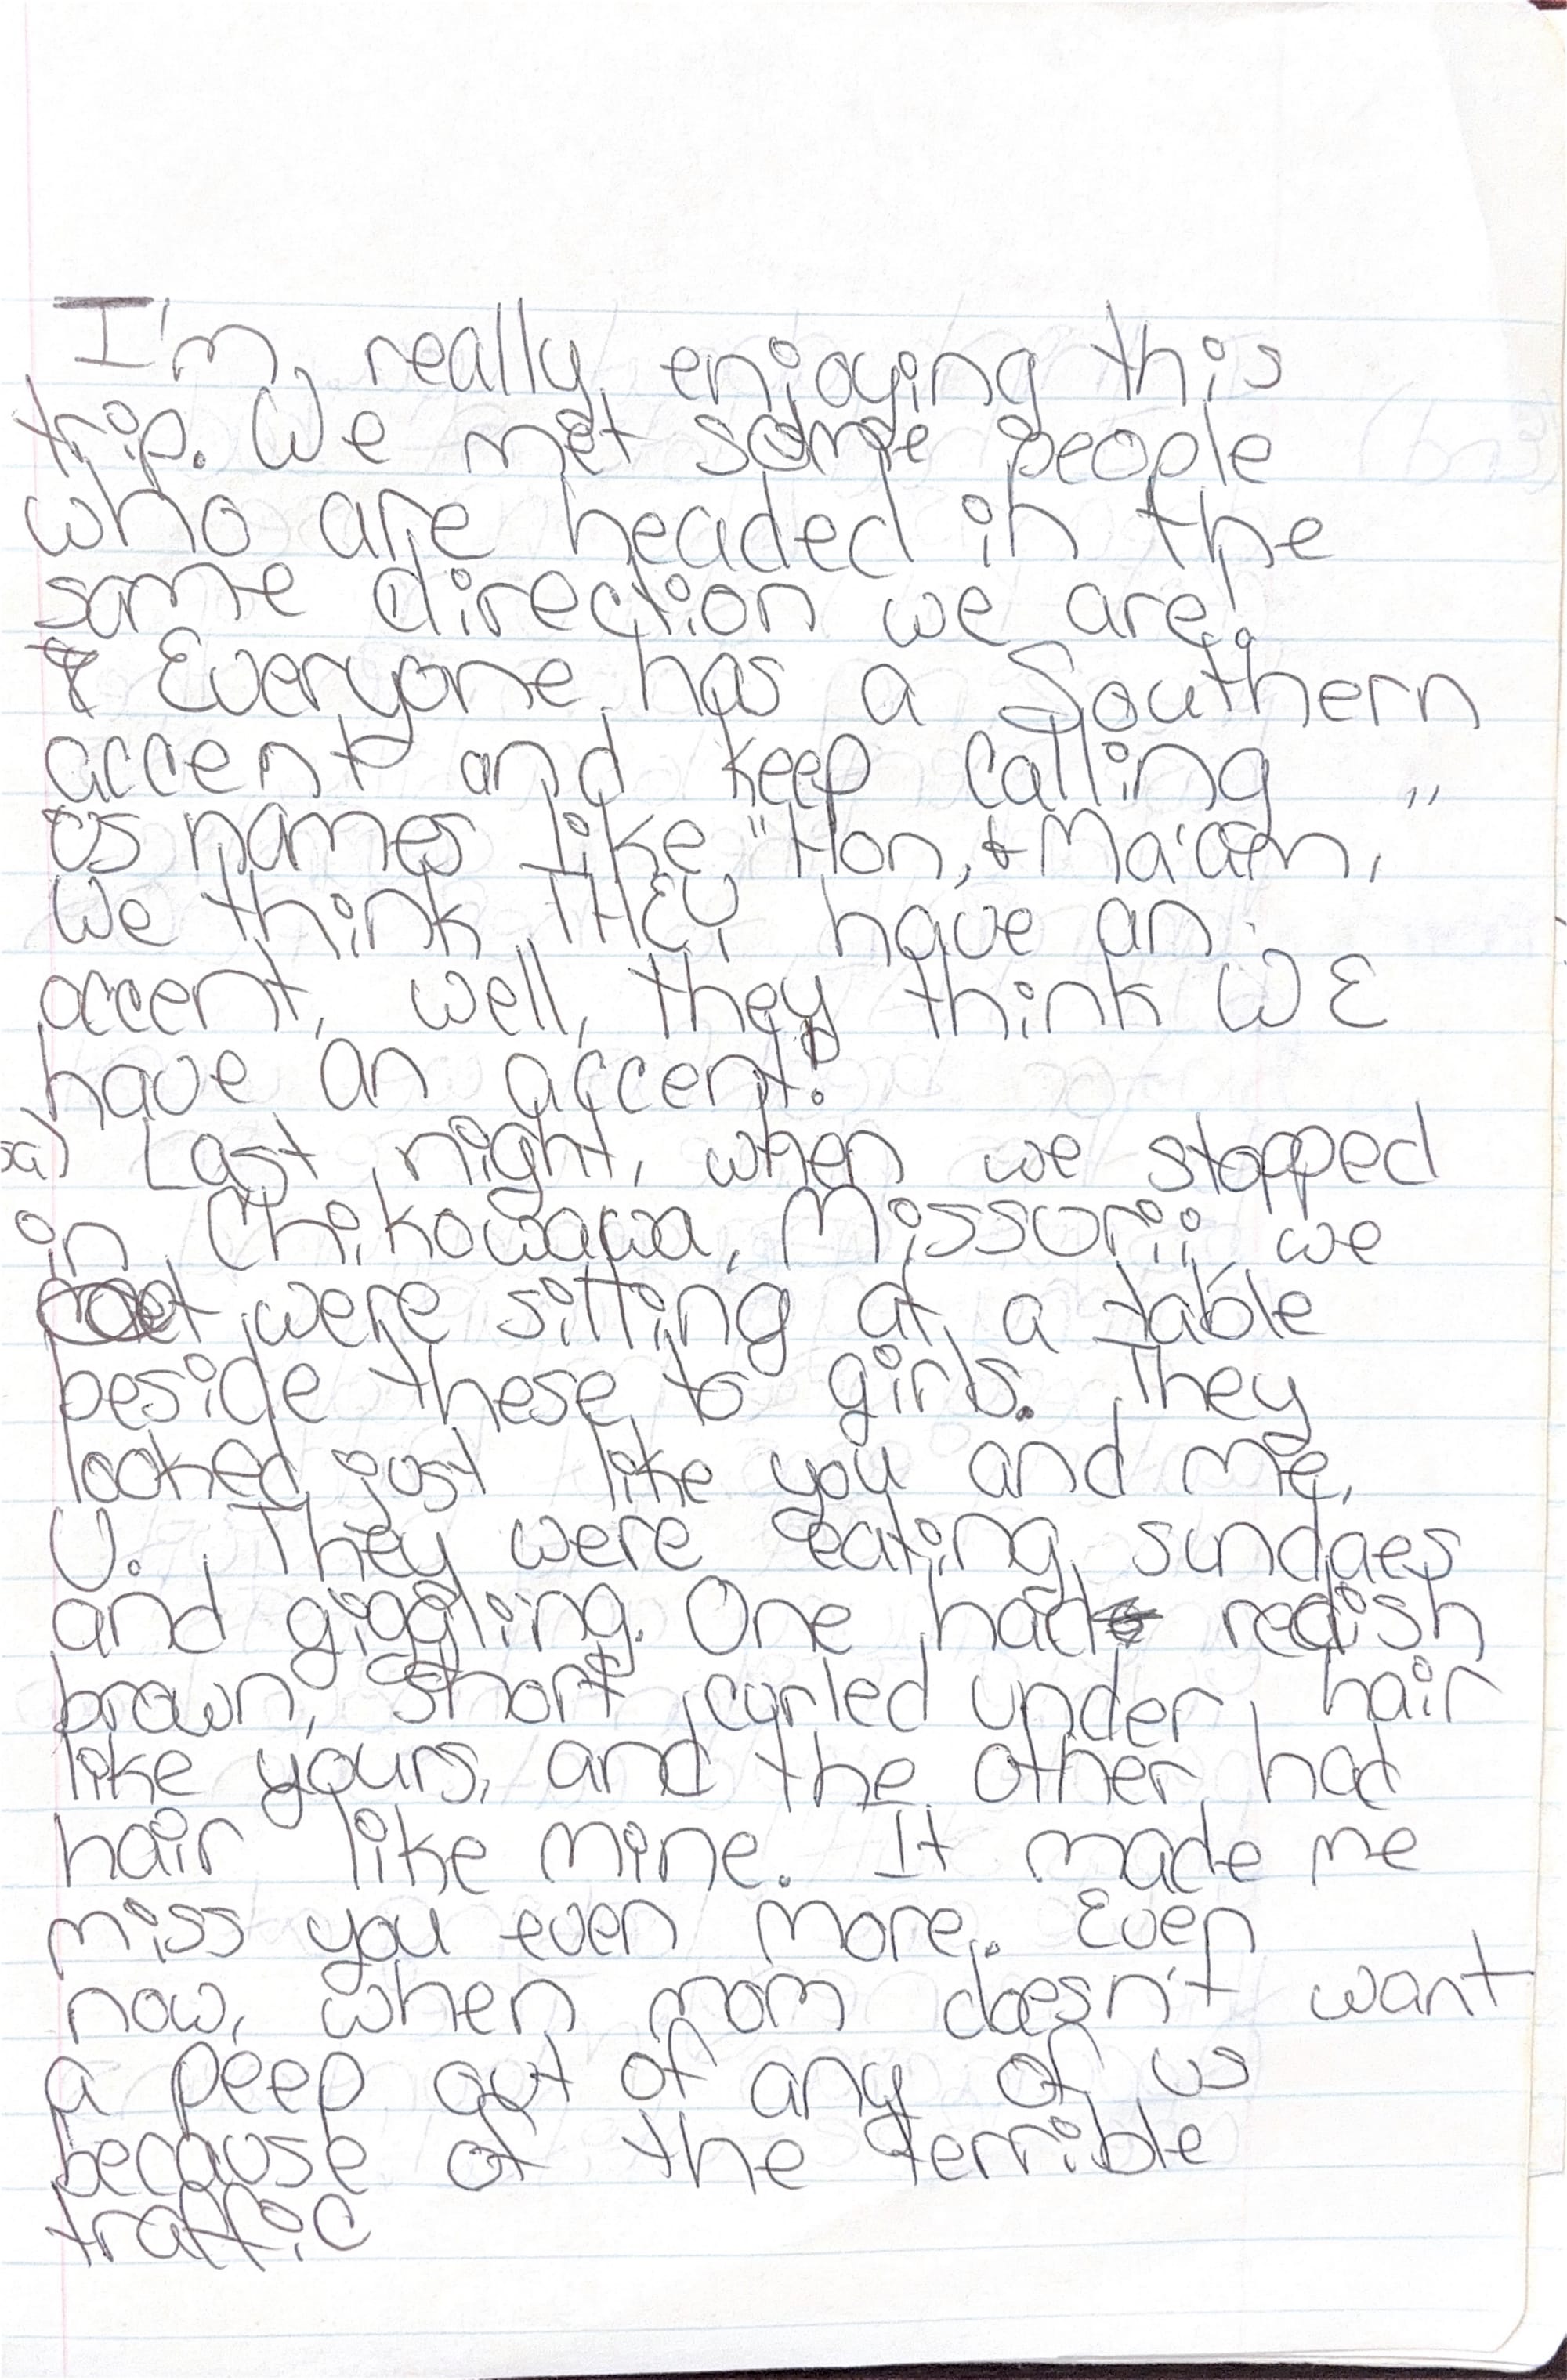 I'm really enjoying this
trip. We met some people
who are headed in the
same direction we are!
Everyone has a Southern
accent and keep calling
us names like "Hon, & Ma'am,"
We think THEY have an
accent, well, they think WE
have an accent!
Last night, when we stopped
in Chikowawa, Missorii we
were sitting at a table
beside these to girls. They
looked just like you and me,
U. They were eating sundaes
and giggling. One had redish
brown, short, curled under, hair
like yours, and the other had
hair like mine. It made me
miss you even more. Even
now, when mom doesn't want
a peep out of any of us
because of the terrible
traffic